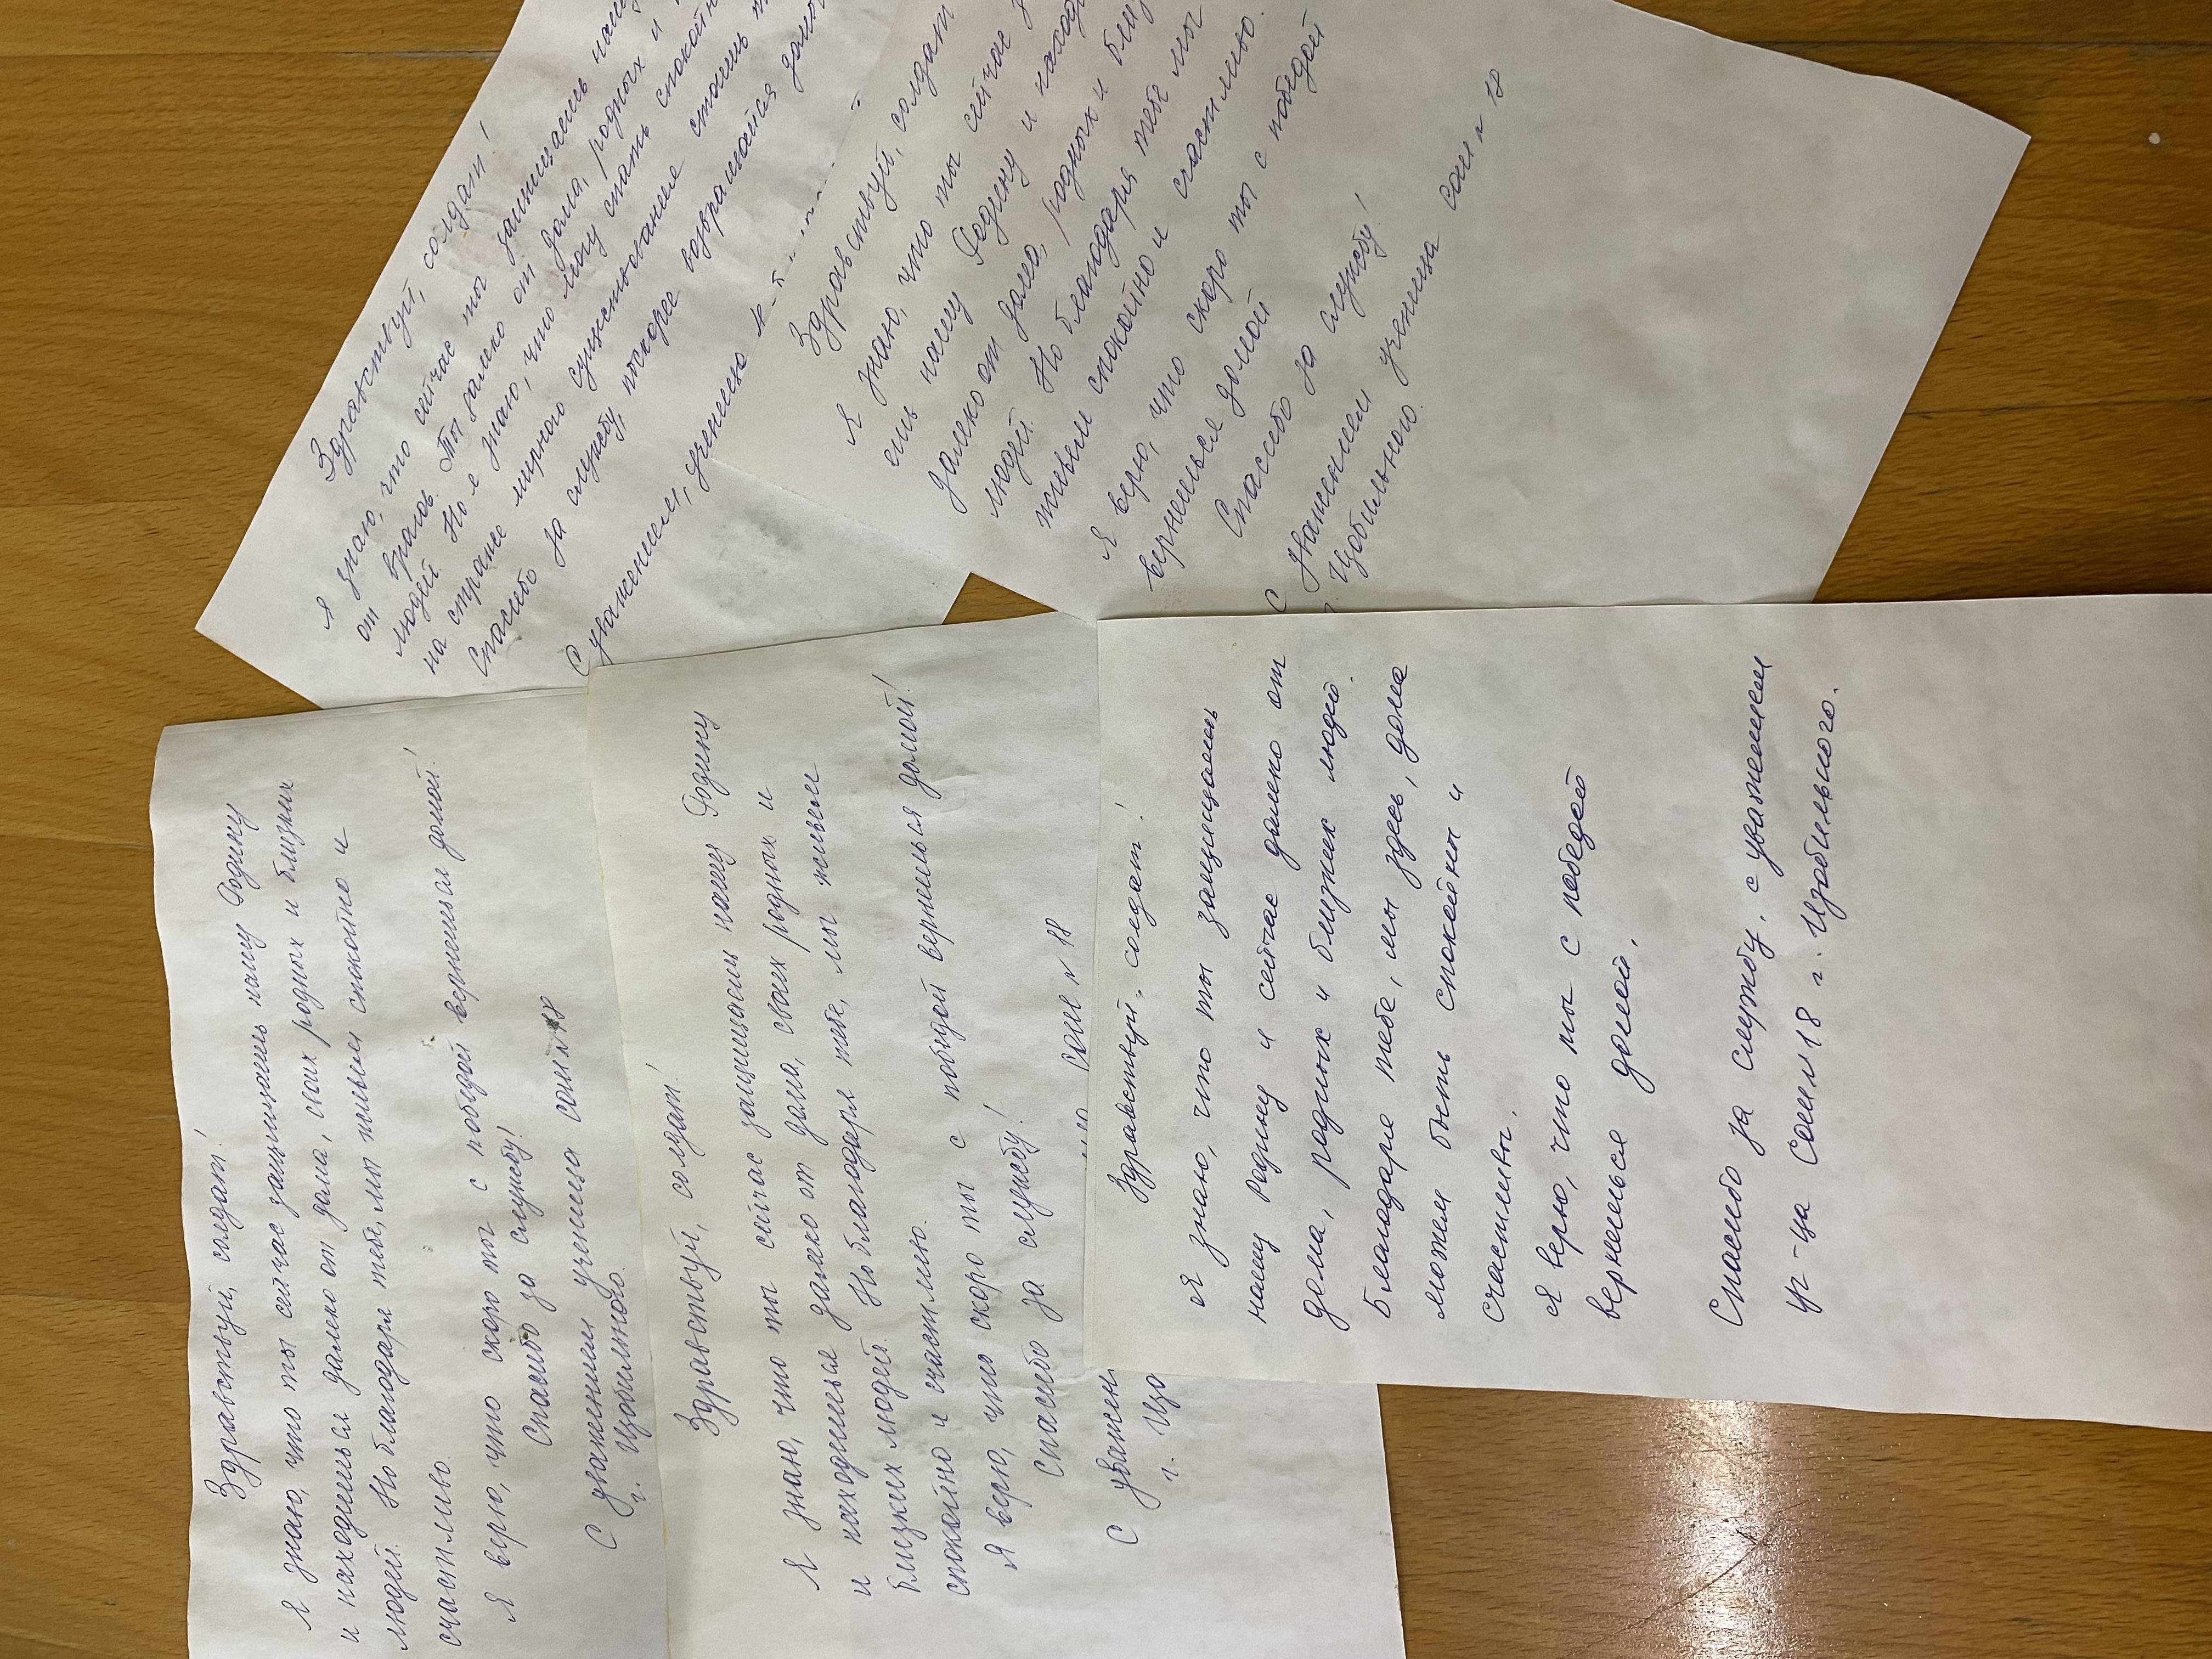 Здравствуй, солдат!
Я знаю, что сейчас ты защищаешь нашу
от врагов. Ты далеко от дома, родных и
людей. Но я знаю, что могу спать спокойно
на страже мирного существования стоишь
Спасибо за службу, поскорее возвращайся домой
С уважением, ученица
Здравствуй, солдат
Я знаю, что ты сейчас
ешь нашу Родину и наход
далеко от дома, родных и бли
людей. Но благодаря тебе мы
живем спокойно и счастливо.
Я верю, что скоро ты с победой
вернешься домой
Спасибо за службу!
С Уважением ученица сош № 18
г. Изобильного.
Здравствуй, солдат!
Я знаю, что ты сейчас защищаешь нашу Родину
и находишься далеко от дома, своих родных и близких
людей. Но благодаря тебе, мы живем спокойно и
счастливо.
Я верю, что скоро ты с победой вернешься домой!
Спасибо за службу!
С уважением ученица сош №18
г. Изобильного.
Здравствуй, солдат!
Я знаю, что ты сейчас защищаешь нашу Родину
и находишься далеко от дома, своих родных и
близких людей. Но благодаря тебе, мы живем
спокойно и счастливо.
Я верю, что скоро ты с победой вернешься домой!
Спасибо за службу!
С уважен № 18
г. Изо
Здравствуй, солдат!
Я знаю, что ты защищаешь
нашу Родину и сейчас далеко от
дома, родных и близких людей.
Благодаря тебе, мы здесь, дома
можем быть спокойны и
счастливы.
Я верю, что ты с победой
вернешься домой.
Спасибо за службу, с уважением
уч-ца Сош №18 г. Изобильного.